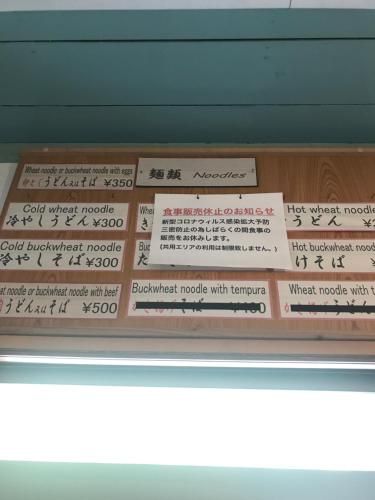 麺類 Noodles
Wheat noodle or buckwheat noodle with eggs
うどん又はそば ¥350
食事販売休止のお知らせ
新型コロナウィルス感染拡大予防
三密防止の為しばらくの間食事の
販売をお休みします。
(共用エリアの利用は制限致しません。)
Cold wheat noodle
冷やしうどん ¥300
Hot wheat noodle
うどん
Cold buckwheat noodle
冷やしそば ¥300
Hot buckwheat nood
けそば
at noodle or buckwheat noodle with beef
うどん又はそば ¥500
Buckwheat noodle with tempura
Wheat noodle with t